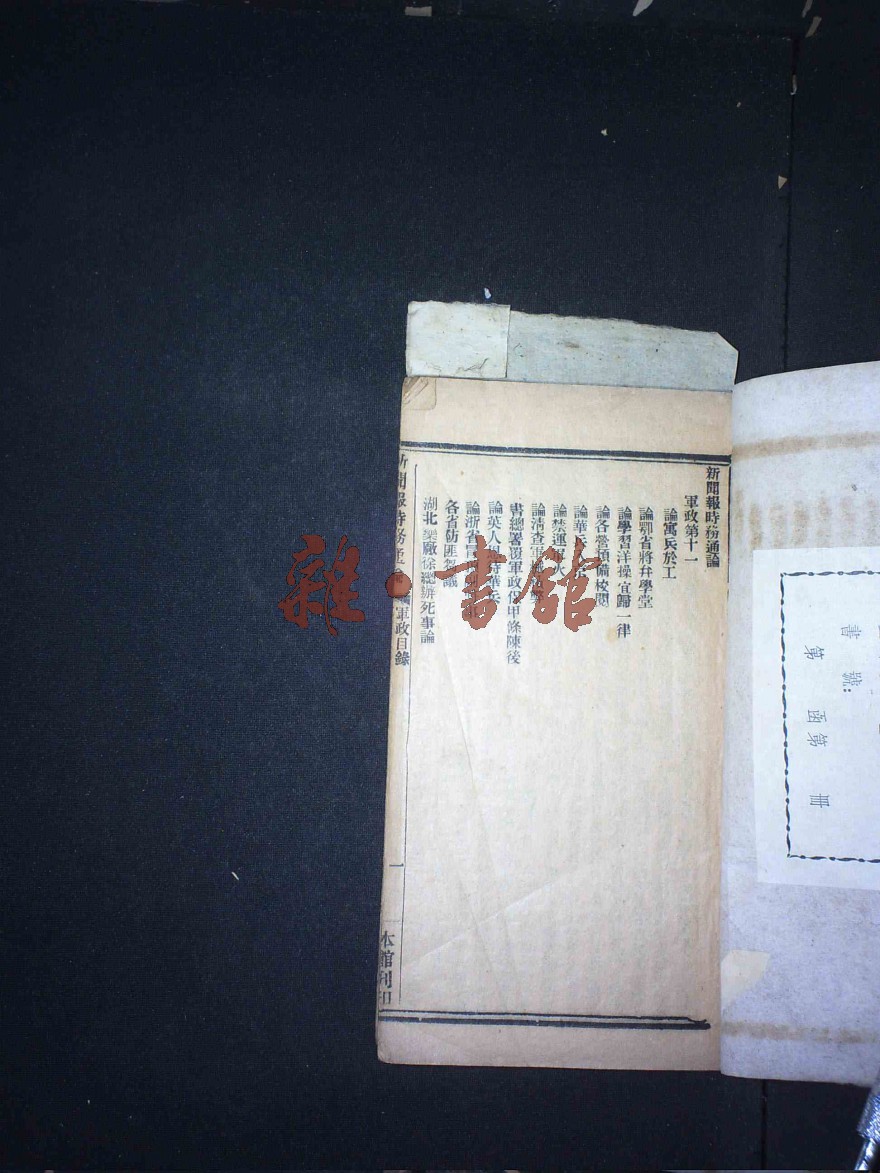 新聞報時務通論
軍政第十一
論寓兵於工
論鄂省將弁學堂
論學習洋操宜歸一律
論各營須備校閱
論華兵
論禁運軍火
論清查軍械積弊
書總署覆軍政保甲條陳後
論英人 華兵
論浙省
各省防匪芻議
湖北槃廠徐總辦死事論
新聞報時務通論 軍政目錄
一
本館刊印
書號:
第 函第 冊
雜·書館